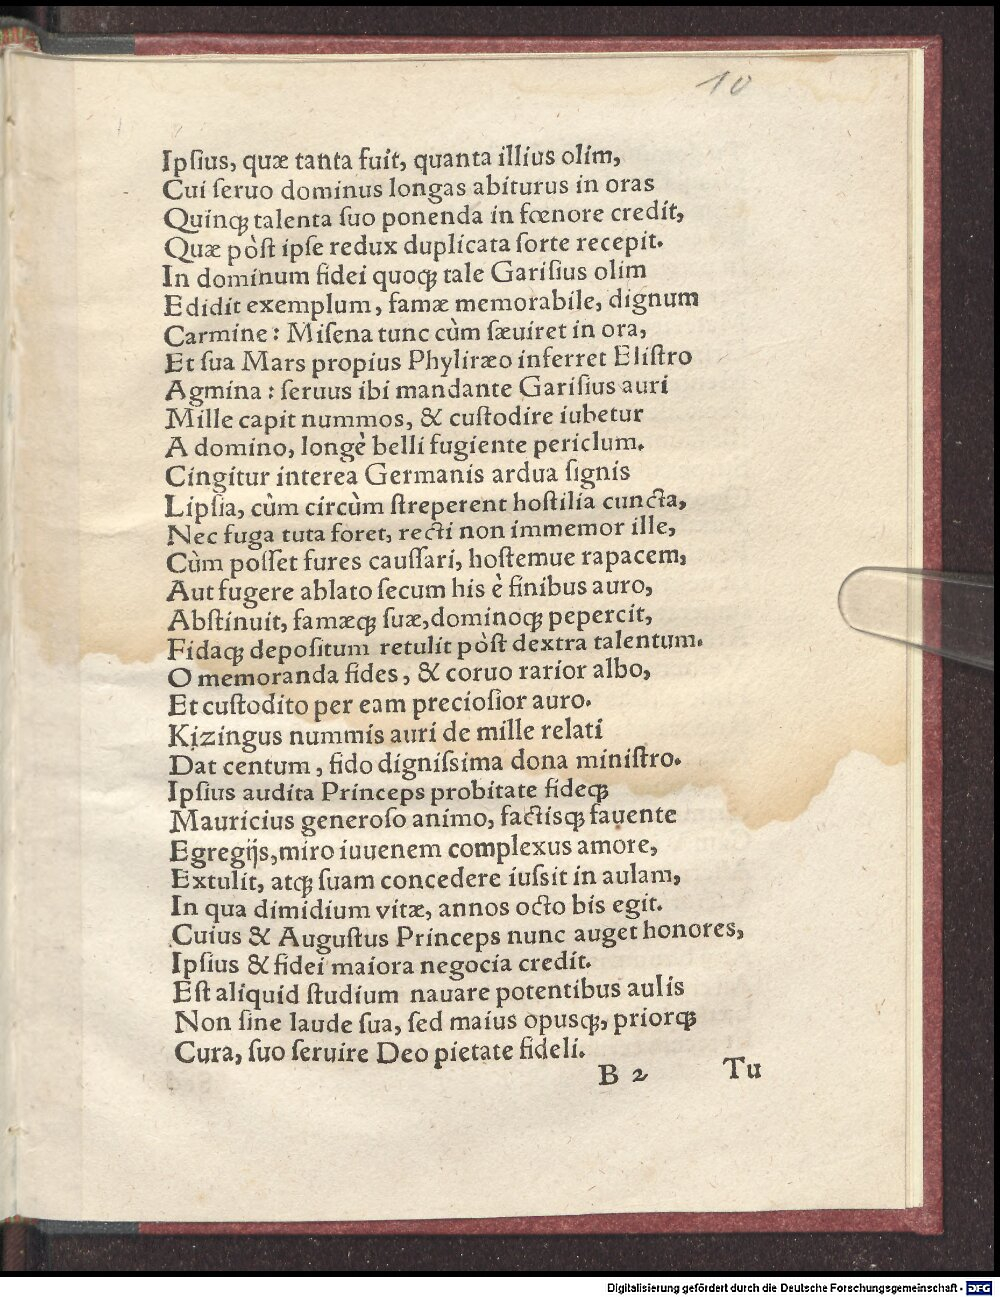 10
Ipſius, quæ tanta fuit, quanta illius olim,
Cui ſeruo dominus longas abiturus in oras
Quinqꝫ talenta ſuo ponenda in fœnore credit,
Quæ pòſt ipſe redux duplicata ſorte recepit.
In dominum fidei quoqꝫ tale Gariſius olim
Edidit exemplum, famæ memorabile, dignum
Carmine: Miſena tunc cùm ſæuiret in ora,
Et ſua Mars propius Phyliræo inferret Eliſtro
Agmina: ſeruus ibi mandante Gariſius auri
Mille capit nummos, & cuſtodire iubetur
A domino, longè belli fugiente periclum.
Cingitur interea Germanis ardua ſignis
Lipſia, cùm circùm ſtreperent hoſtilia cuncta,
Nec fuga tuta foret, recti non immemor ille,
Cùm poſſet fures cauſſari, hoſtemue rapacem,
Aut fugere ablato ſecum his è finibus auro,
Abſtinuit, famæqꝫ ſuæ, dominoqꝫ pepercit,
Fidaqꝫ depoſitum retulit pòſt dextra talentum.
O memoranda fides, & coruo rarior albo,
Et cuſtodito per eam precioſior auro.
Kizingus nummis auri de mille relati
Dat centum, fido digniſsima dona miniſtro.
Ipſius audita Princeps probitate fideqꝫ
Mauricius generoſo animo, factisqꝫ fauente
Egregijs, miro iuuenem complexus amore,
Extulit, atqꝫ ſuam concedere iuſsit in aulam,
In qua dimidium vitæ, annos octo bis egit.
Cuius & Auguſtus Princeps nunc auget honores,
Ipſius & fidei maiora negocia credit.
Eſt aliquid ſtudium nauare potentibus aulis
Non ſine laude ſua, ſed maius opusqꝫ, priorqꝫ
Cura, ſuo ſeruire Deo pietate fideli.
B 2 Tu
Digitalisierung gefördert durch die Deutsche Forschungsgemeinschaft - DFG